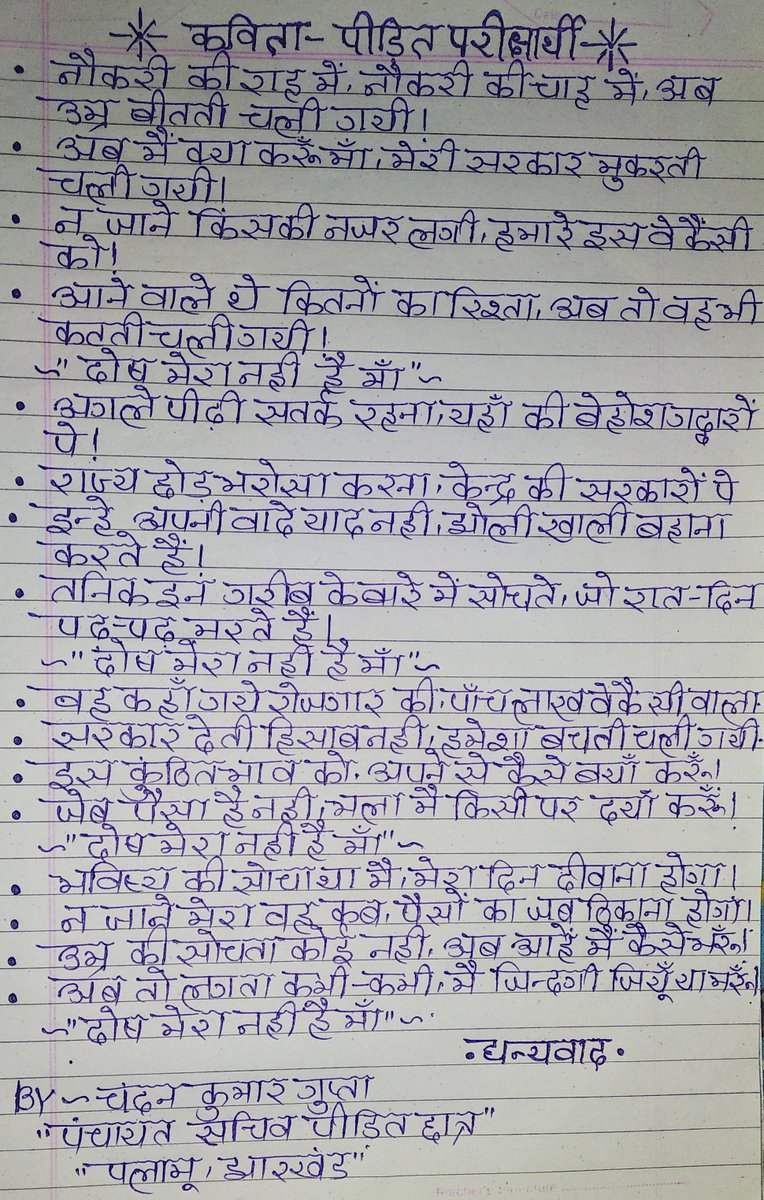 कविता - पीड़ित परीक्षार्थी
• नौकरी की राह में, नौकरी की चाह में, अब
उम्र बीतती चली गयी।
• अब मैं क्या करूँ माँ, मेरी सरकार मुकरती
चली गयी।
• न जाने किसकी नजर लगी, हमारे इस वेकैंसी
को!
• आने वाले थे कितनों का रिश्ता, अब तो वह भी
कतती चली गयी!
~"दोष मेरा नही है माँ"~
• अगले पीढ़ी सतर्क रहना, यहाँ की बेहोश गद्दारों
पे!
• राज्य छोड़ भरोसा करना, केन्द्र की सरकारों पे
• इन्हे अपनी वादे याद नही, झोली खाली बहाना
करते हैं!
• तनिक इन गरीब के बारे में सोचते, जो रात-दिन
पढ़-पढ़ मरते हैं!
~"दोष मेरा नही है माँ"~
• वह कहाँ गये रोजगार की, पाँच लाख वेकैंसी वाला
• सरकार देती हिसाब नही, हमेशा बचती चली गयी
• इस कुंठित भाव को, अपने से कैसे बयाँ करूँ।
• जेब पैसा है नही, भला मै किसी पर दयाँ करूँ।
~"दोष मेरा नही है माँ"~
• भविष्य की सोचा था मै, मेरा दिन दीवाना होगा।
• न जाने मेरा वह कब, पैसों का जब ठिकाना होगा।
• उम्र की सोचता कोई नही, अब आहें मैं कैसे भरूँ।
• अब तो लगता कभी-कभी, मै जिन्दगी जियूँ या मरूँ।
~"दोष मेरा नही है माँ"~
• धन्यवाद •
BY ~ चंदन कुमार गुप्ता
"पंचायत सचिव पीड़ित छात्र"
"पलामू, झारखंड"